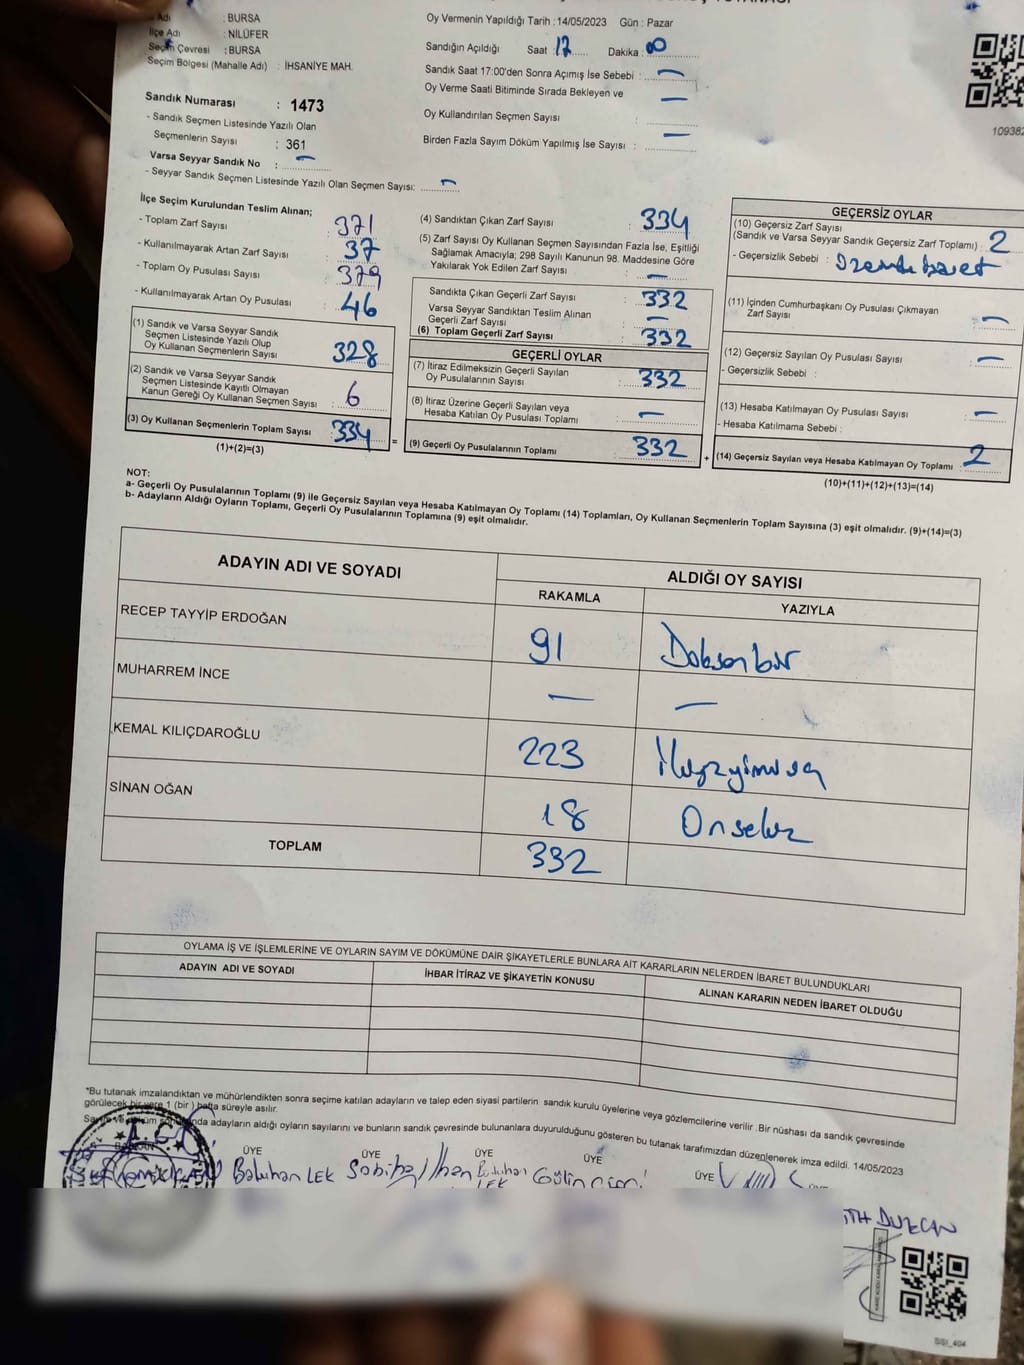 Adı : BURSA
İlçe Adı : NİLÜFER
Seçim Çevresi : BURSA
Seçim Bölgesi (Mahalle Adı) : İHSANİYE MAH.
Oy Vermenin Yapıldığı Tarih : 14/05/2023 Gün : Pazar
Sandığın Açıldığı Saat : 17 Dakika : 00
Sandık Saat 17:00'den Sonra Açımış İse Sebebi : —
Oy Verme Saati Bitiminde Sırada Bekleyen ve —
Oy Kullandırılan Seçmen Sayısı :
Birden Fazla Sayım Döküm Yapılmış İse Sayısı : —
109382
Sandık Numarası : 1473
- Sandık Seçmen Listesinde Yazılı Olan
Seçmenlerin Sayısı : 361
Varsa Seyyar Sandık No : —
- Seyyar Sandık Seçmen Listesinde Yazılı Olan Seçmen Sayısı: —
İlçe Seçim Kurulundan Teslim Alınan;
- Toplam Zarf Sayısı : 371
- Kullanılmayarak Artan Zarf Sayısı : 37
- Toplam Oy Pusulası Sayısı : 379
- Kullanılmayarak Artan Oy Pusulası : 46
(1) Sandık ve Varsa Seyyar Sandık
Seçmen Listesinde Yazılı Olup
Oy Kullanan Seçmenlerin Sayısı : 328
(2) Sandık ve Varsa Seyyar Sandık
Seçmen Listesinde Kayıtlı Olmayan
Kanun Gereği Oy Kullanan Seçmen Sayısı : 6
(3) Oy Kullanan Seçmenlerin Toplam Sayısı : 334
(1)+(2)=(3)
=
(4) Sandıktan Çıkan Zarf Sayısı : 334
(5) Zarf Sayısı Oy Kullanan Seçmen Sayısından Fazla İse, Eşitliği
Sağlamak Amacıyla; 298 Sayılı Kanunun 98. Maddesine Göre
Yakılarak Yok Edilen Zarf Sayısı : —
Sandıkta Çıkan Geçerli Zarf Sayısı : 332
Varsa Seyyar Sandıktan Teslim Alınan
Geçerli Zarf Sayısı : —
(6) Toplam Geçerli Zarf Sayısı : 332
GEÇERLİ OYLAR
(7) İtiraz Edilmeksizin Geçerli Sayılan
Oy Pusulalarının Sayısı : 332
(8) İtiraz Üzerine Geçerli Sayılan veya
Hesaba Katılan Oy Pusulası Toplamı : —
(9) Geçerli Oy Pusulalarının Toplamı : 332
+
GEÇERSİZ OYLAR
(10) Geçersiz Zarf Sayısı
(Sandık ve Varsa Seyyar Sandık Geçersiz Zarf Toplamı) : 2
- Geçersizlik Sebebi : Üzerinde işaret
(11) İçinden Cumhurbaşkanı Oy Pusulası Çıkmayan
Zarf Sayısı : —
(12) Geçersiz Sayılan Oy Pusulası Sayısı : —
- Geçersizlik Sebebi :
(13) Hesaba Katılmayan Oy Pusulası Sayısı : —
- Hesaba Katılmama Sebebi :
(14) Geçersiz Sayılan veya Hesaba Katılmayan Oy Toplamı : 2
(10)+(11)+(12)+(13)=(14)
NOT:
a- Geçerli Oy Pusulalarının Toplamı (9) ile Geçersiz Sayılan veya Hesaba Katılmayan Oy Toplamı (14) Toplamları, Oy Kullanan Seçmenlerin Toplam Sayısına (3) eşit olmalıdır. (9)+(14)=(3)
b- Adayların Aldığı Oyların Toplamı, Geçerli Oy Pusulalarının Toplamına (9) eşit olmalıdır.
ADAYIN ADI VE SOYADI
ALDIĞI OY SAYISI
RAKAMLA YAZIYLA
RECEP TAYYİP ERDOĞAN 91 Doksanbir
MUHARREM İNCE — —
KEMAL KILIÇDAROĞLU 223 İkiyüzyirmiüç
SİNAN OĞAN 18 Onsekiz
TOPLAM 332
OYLAMA İŞ VE İŞLEMLERİNE VE OYLARIN SAYIM VE DÖKÜMÜNE DAİR ŞİKAYETLERLE BUNLARA AİT KARARLARIN NELERDEN İBARET BULUNDUKLARI
ADAYIN ADI VE SOYADI İHBAR İTİRAZ VE ŞİKAYETİN KONUSU ALINAN KARARIN NEDEN İBARET OLDUĞU
*Bu tutanak imzalandıktan ve mühürlendikten sonra seçime katılan adayların ve talep eden siyasi partilerin sandık kurulu üyelerine veya gözlemcilerine verilir .Bir nüshası da sandık çevresinde
görülecek bir yere 1 (bir ) hafta süreyle asılır.
adayların aldığı oyların sayılarını ve bunların sandık çevresinde bulunanlara duyurulduğunu gösteren bu tutanak tarafımızdan düzenlenerek imza edildi. 14/05/2023
ÜYE ÜYE ÜYE ÜYE ÜYE
Batuhan LEK Sabiha İlhan
DUZCAN
SSI_404